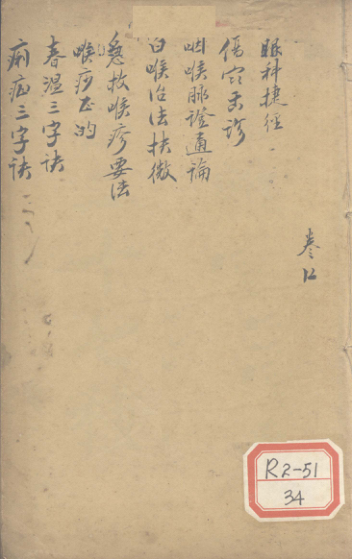 眼科捷徑
傷寒舌診
咽喉脉證通論
白喉治法抉微
急救喉疹要法
喉痧正的
春温三字訣
痢症三字訣
卷12
R2-51
34